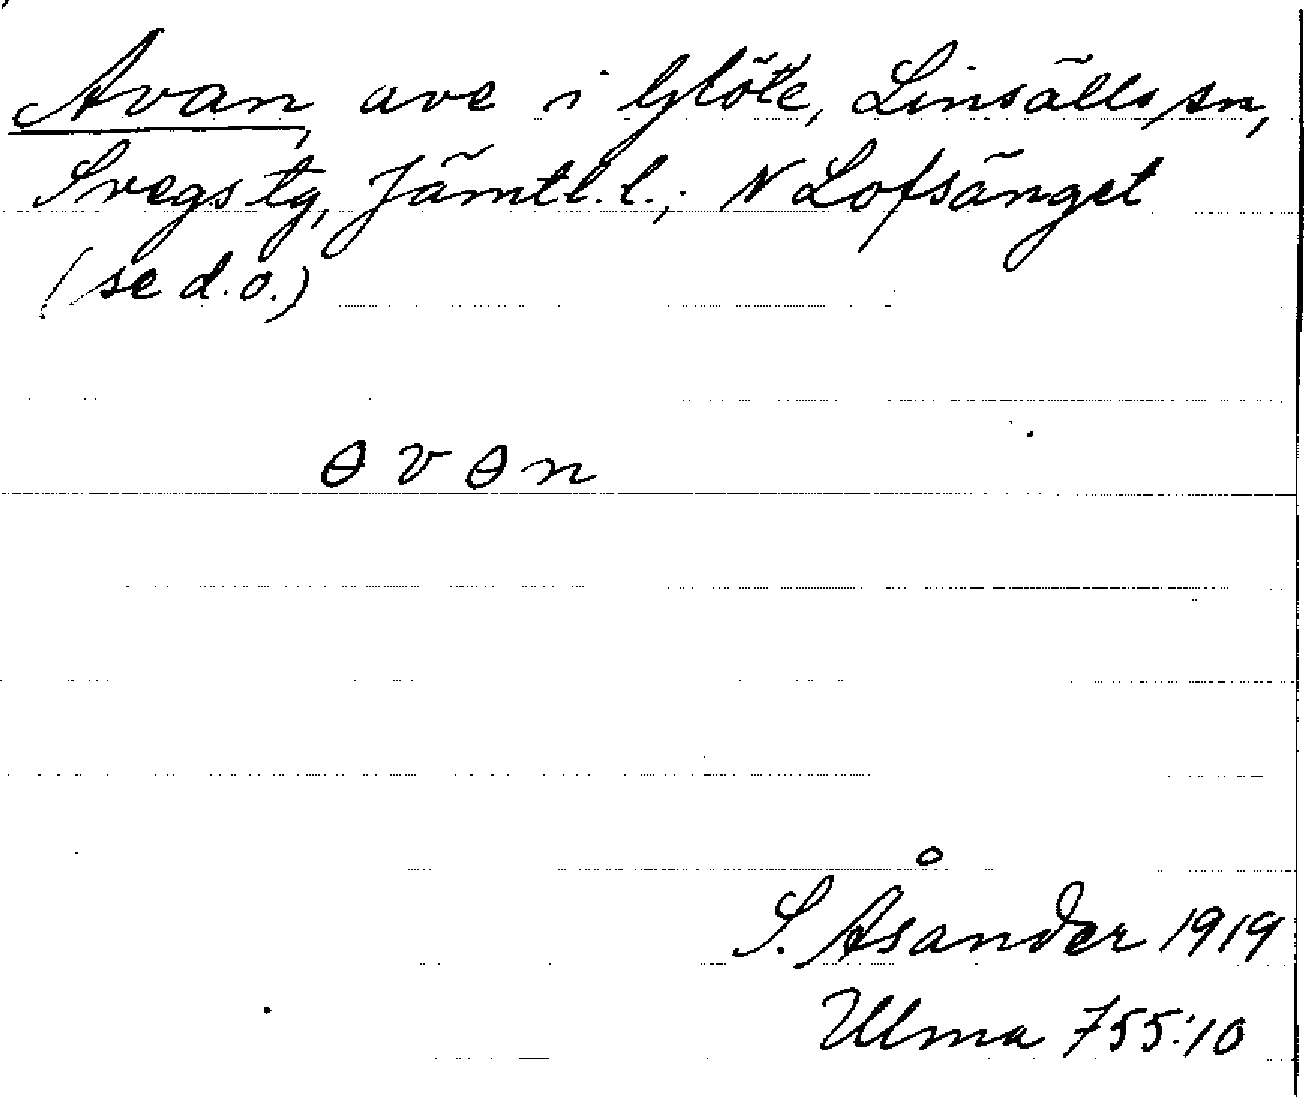 Avan, ave n i Glöte, Linsälls sn,
Svegs tg, Jämtl. l.; N Lofsänget
(se d. o.)
ɵ v ɵ n
S. Åsander 1919
Ulma 755:10